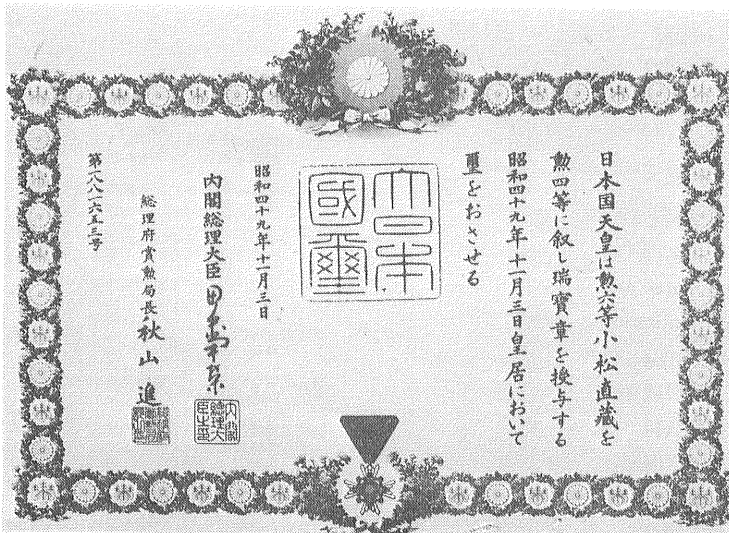 日本国天皇は勲六等小松直蔵を
勲四等に叙し瑞寶章を授与する
昭和四十九年十一月三日皇居において
璽をおさせる
大日本
國璽
昭和四十九年十一月三日
内閣総理大臣 田中角榮
内閣
總理大
臣之印
総理府賞勲局長 秋山 進
第一八八一六五三号